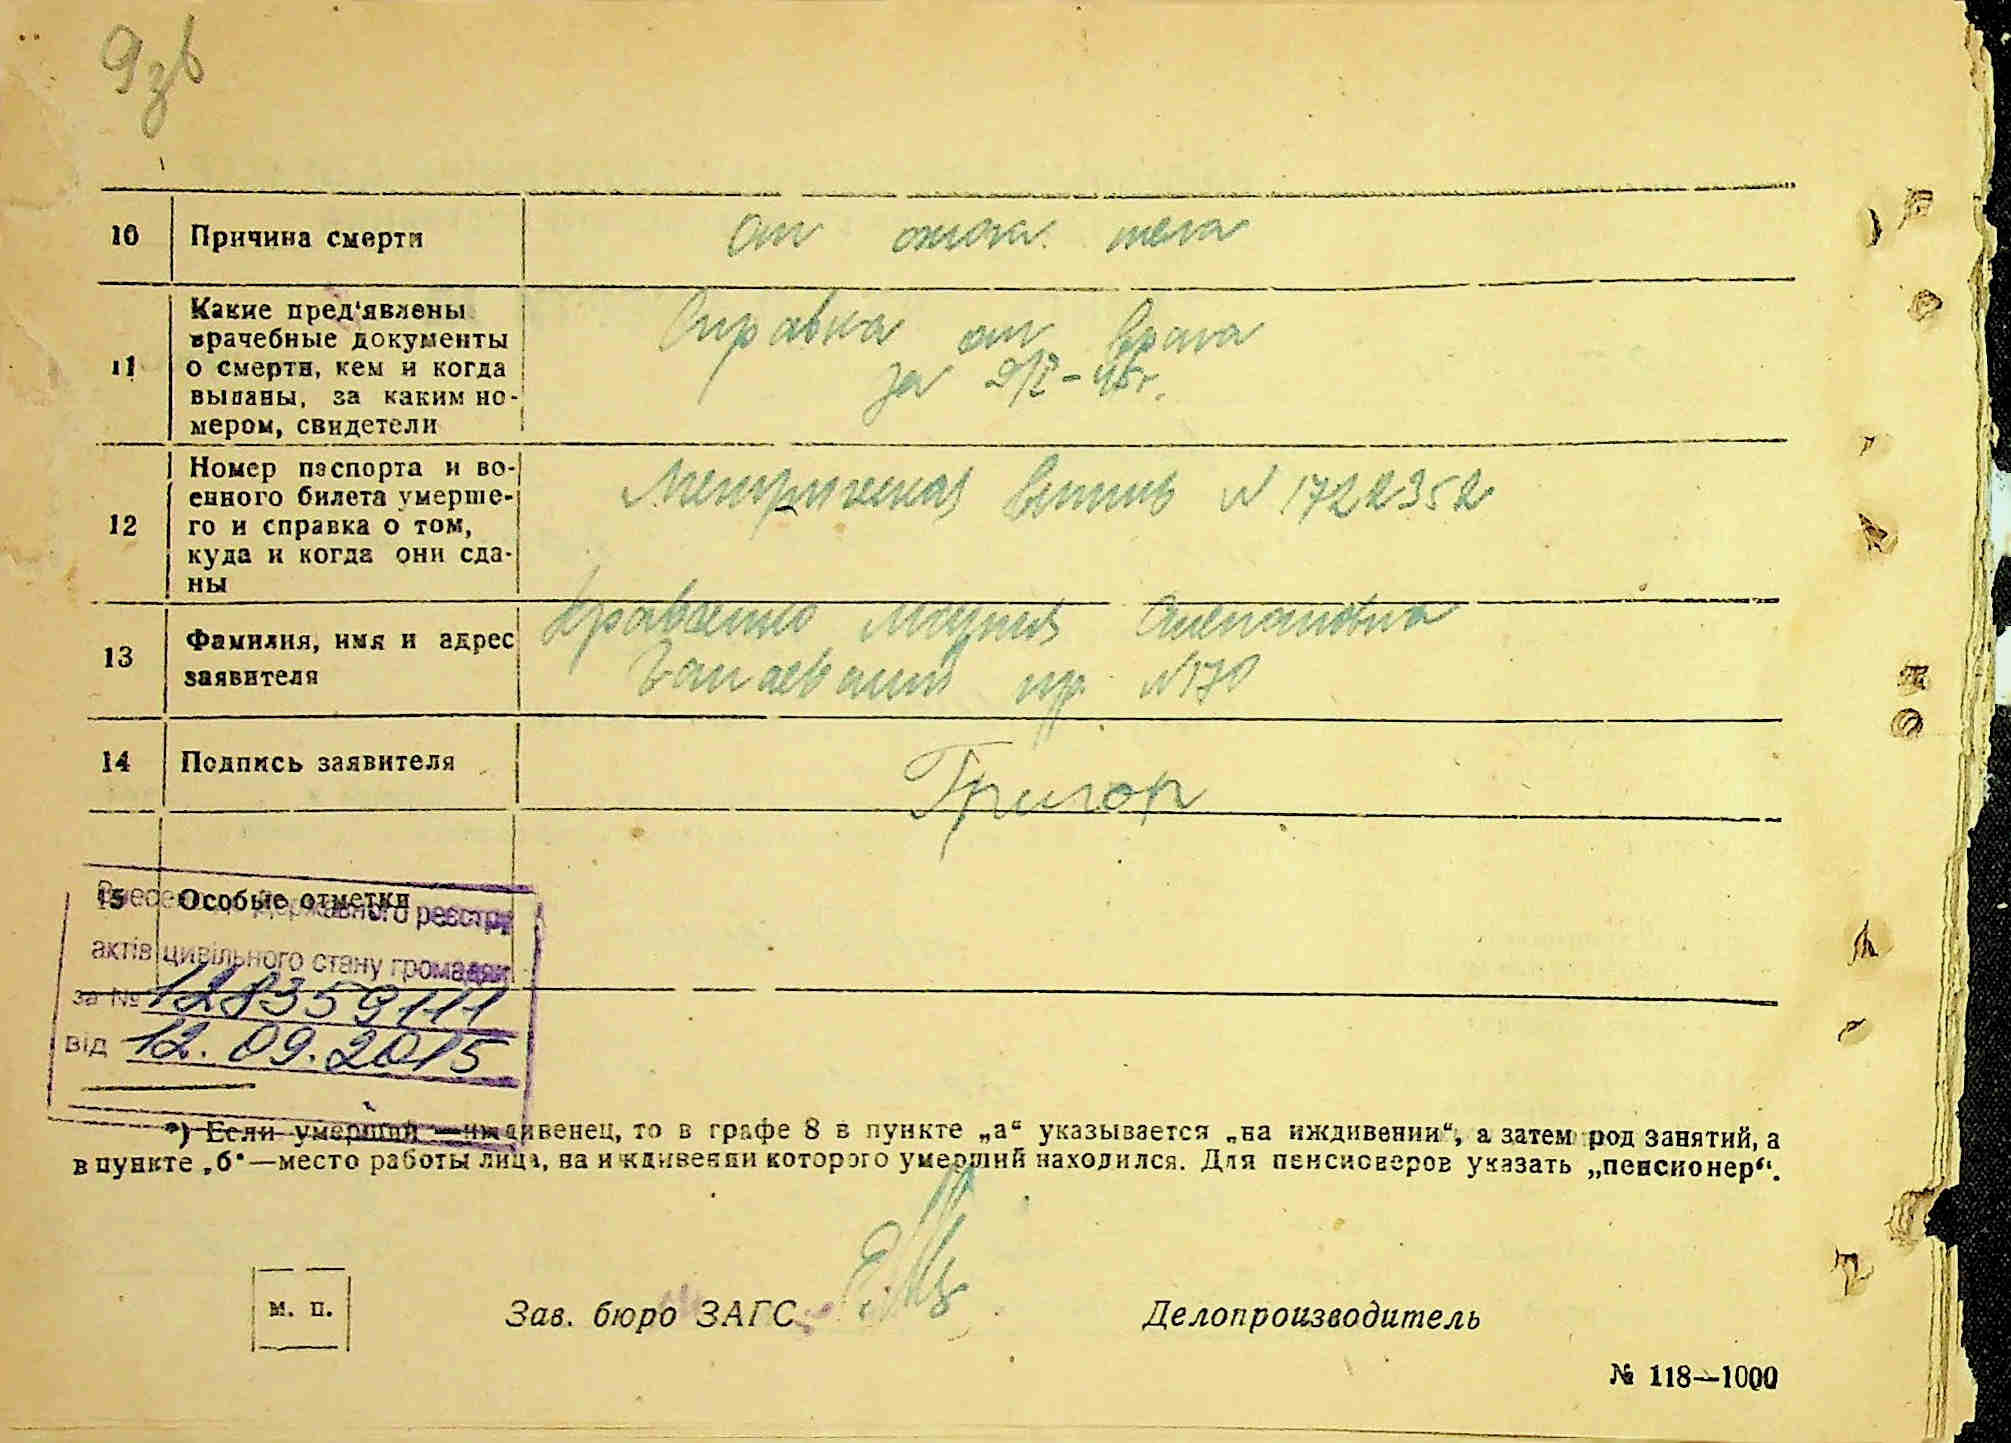 9зв
10 Причина смерти
От ожога тела
11 Какие пред'явлены
врачебные документы
о смерти, кем и когда
выданы, за каким но-
мером, свидетели
Справка от врача
за 2/II-45г.
12 Номер паспорта и во-
енного билета умерше-
го и справка о том,
куда и когда они сда-
ны
Метрическая выпись № 1722352
13 Фамилия, имя и адрес
заявителя
Кравченко Мария Степановна
пр. №170
14 Подпись заявителя
Григор
15 Особые отметки
Внесено до Державного реєстру
актів цивільного стану громадян
за № 128359111
від 12.09.2015
*) Если умерший —иждивенец, то в графе 8 в пункте „а“ указывается „на иждивении“, а затем род занятий, а
в пункте „б“—место работы лица, на иждивении которого умерший находился. Для пенсионеров указать „пенсионер“.
м. п.
Зав. бюро ЗАГС
Делопроизводитель
№ 118—1000